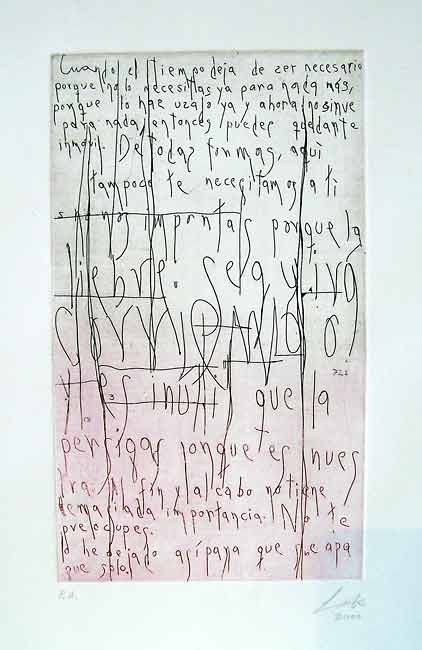 Cuando el tiempo deja de ser necesario
porque no lo necesitas ya para nada más,
porque lo has usado ya y ahora no sirve
para nada, entonces puedes quedarte
inmóvil. De todas formas, aquí
tampoco te necesitamos a ti
ni nos importas porque la
liebre seguirá
corriendo
y es inútil que la
persigas porque es nues
tra. Al fin y al cabo no tiene
demasiada importancia. No te
preocupes.
Lo he dejado así para que se apa
gue solo.
P.A.